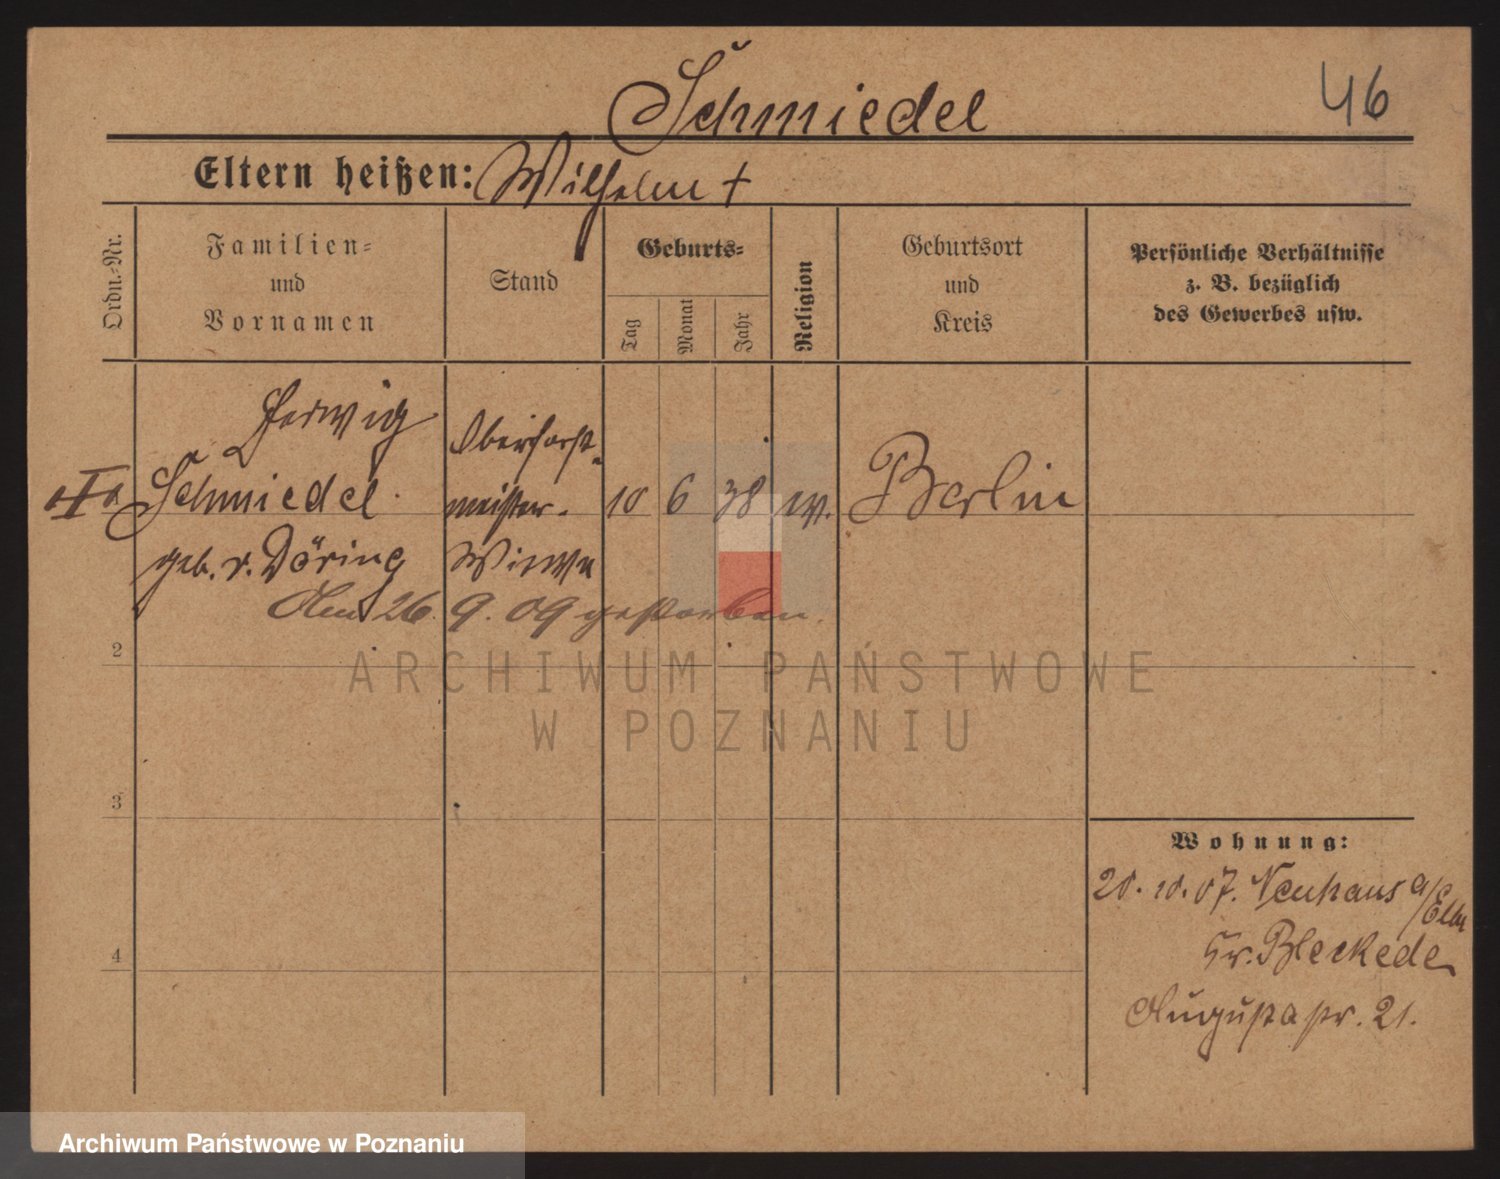 Schmiedel
46
Eltern heißen: Wilhelm †
Ordn.-Nr.
Familien-
und
Vornamen
Stand
Geburts-
Tag
Monat
Jahr
Religion
Geburtsort
und
Kreis
Persönliche Verhältnisse
z. B. bezüglich
des Gewerbes usw.
Hedwig
Schmiedel
geb. v. Döring
Oberforst-
meister-
Witwe
10 6 38 ev. Berlin
Am 26. 9. 09 gestorben.
2
3
4
Wohnung:
20. 10. 07. Neuhaus a/Elbe
Kr. Bleckede
Augustastr. 21.
ARCHIWUM PAŃSTWOWE
W POZNANIU
Archiwum Państwowe w Poznaniu